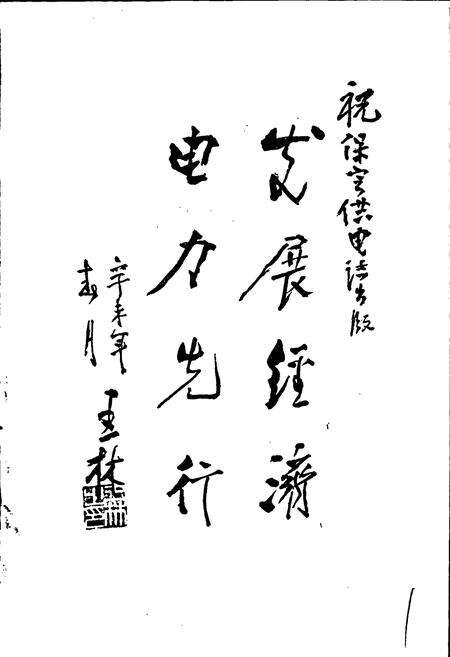 祝保定供电志出版
发展经济
电力先行
辛未年
春月
王林